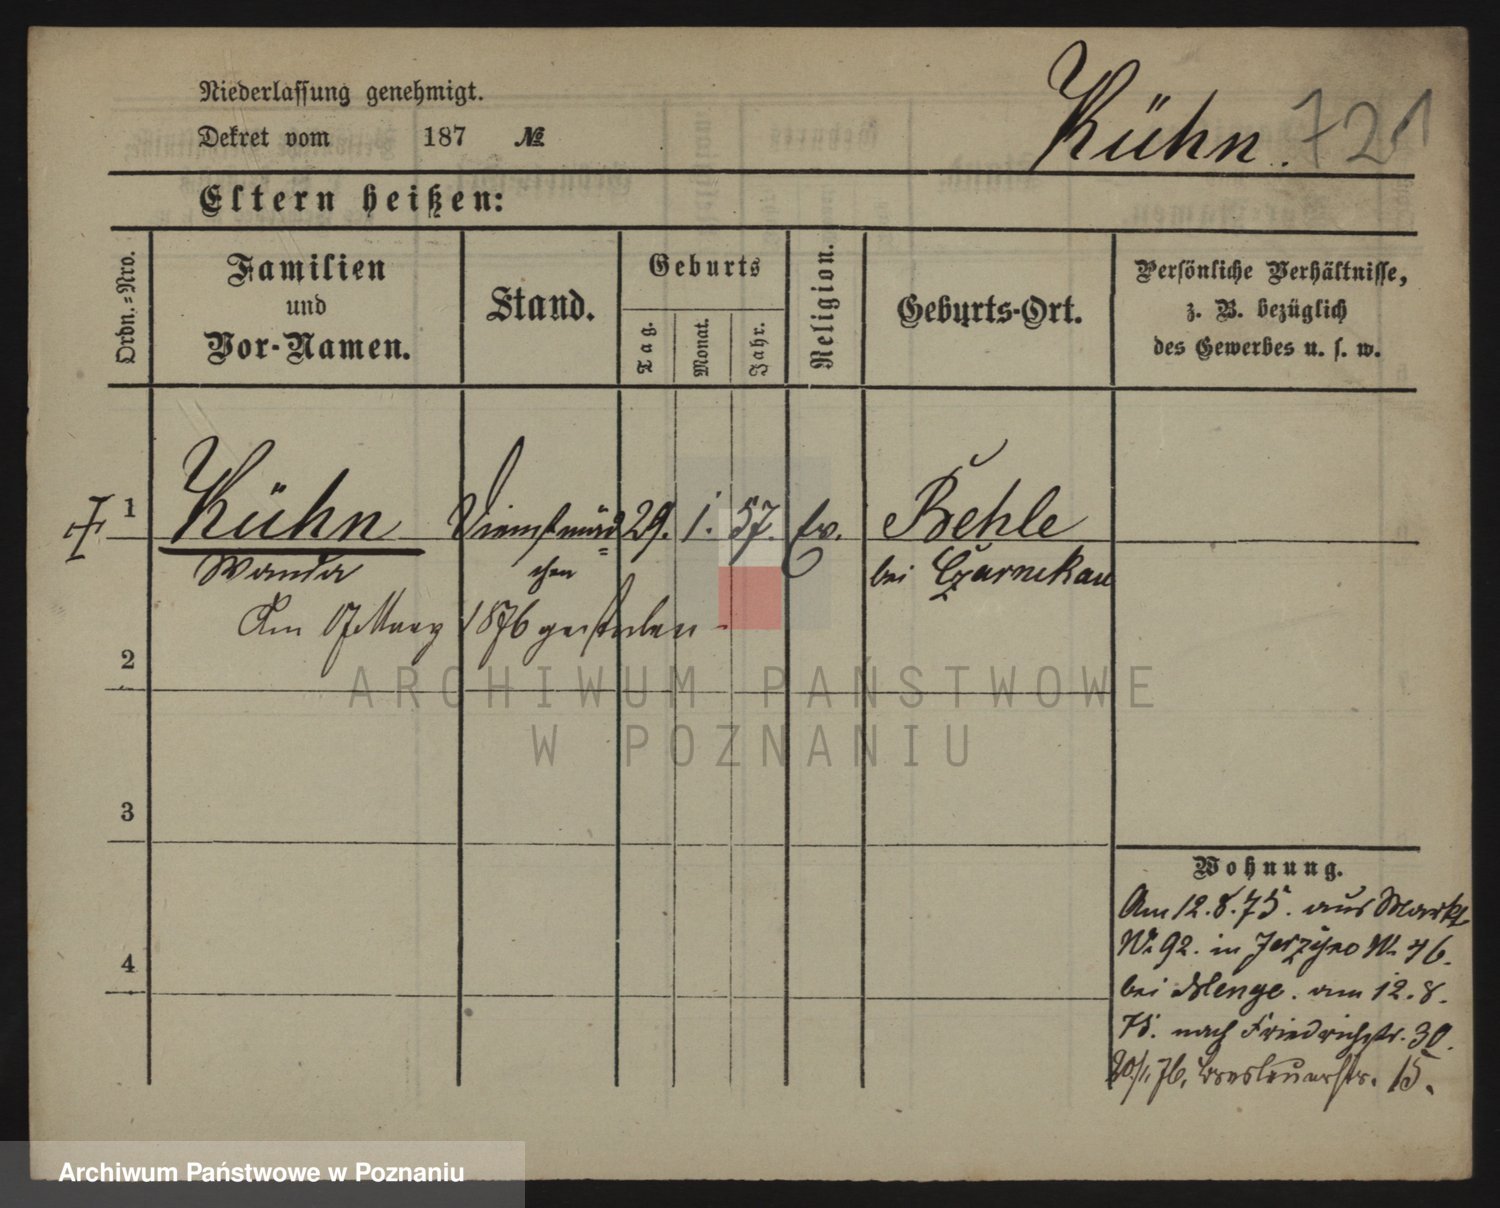 Niederlassung genehmigt.
Dekret vom 187 №
Kühn. 721
Eltern heißen:
Ordn.=Nro.
Familien
und
Vor-Namen.
Stand.
Geburts
Tag.
Monat.
Jahr.
Religion.
Geburts-Ort.
Persönliche Verhältnisse,
z. B. bezüglich
des Gewerbes u. s. w.
1 Kühn Dienstmäd= 29. 1. 57. Ev. Behle
Wanda chen bei Czarnikau
Am 1876 gestorben
2
3
4
ARCHIWUM PAŃSTWOWE
W POZNANIU
Wohnung.
Am 12.8.75. aus Markt
№ 92. in Jerzyce № 46.
bei Menge. am 12.8.
75. nach Friedrichstr. 30.
76, 15.
Archiwum Państwowe w Poznaniu